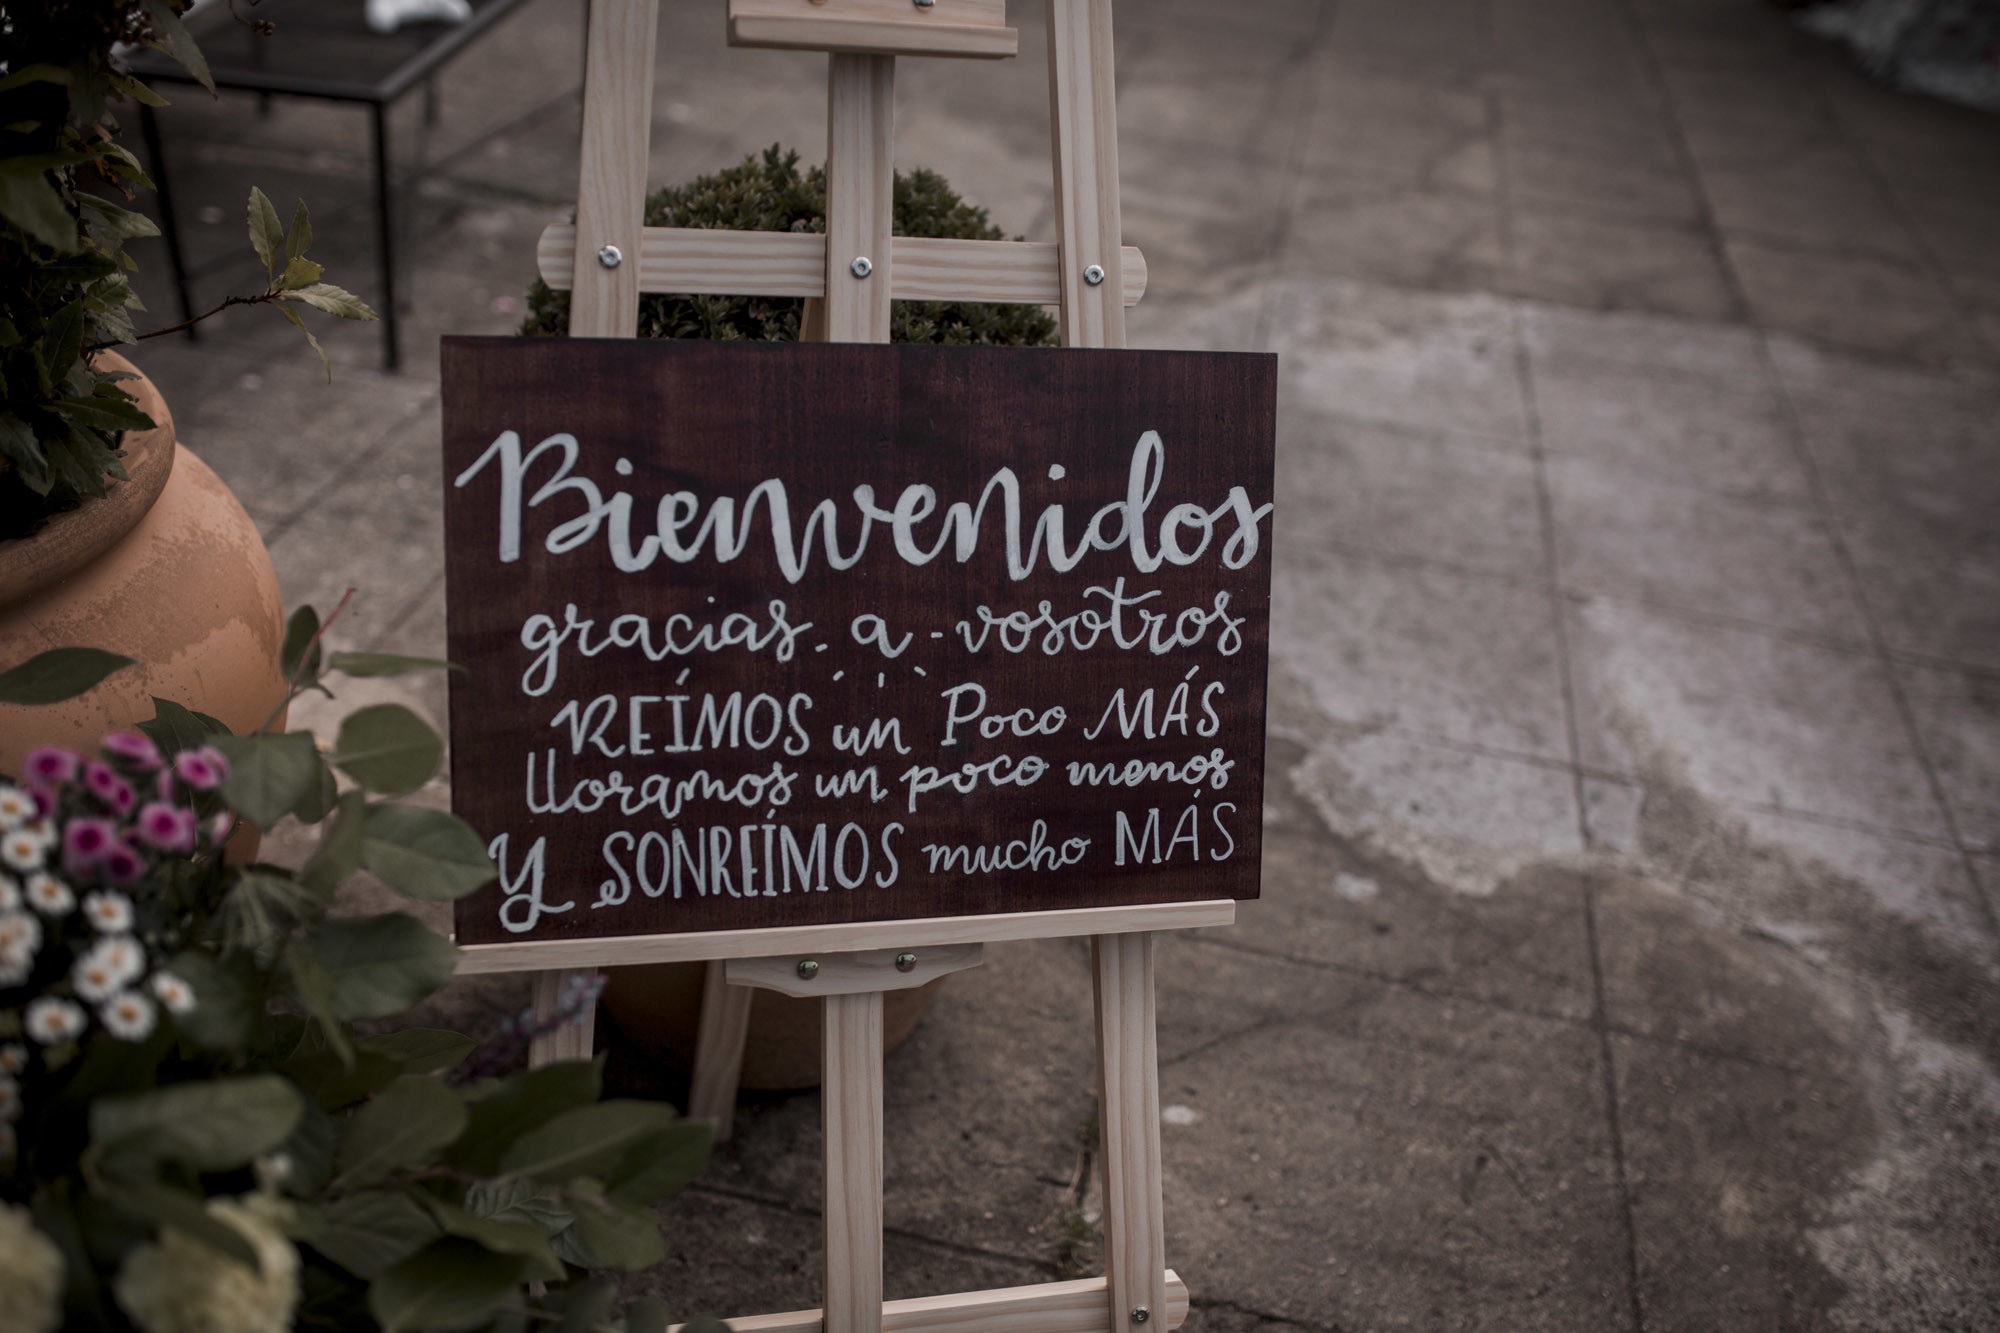 Bienvenidos
gracias. a - vosotros
REÍMOS un Poco MÁS
lloramos un poco menos
Y SONREÍMOS mucho MÁS